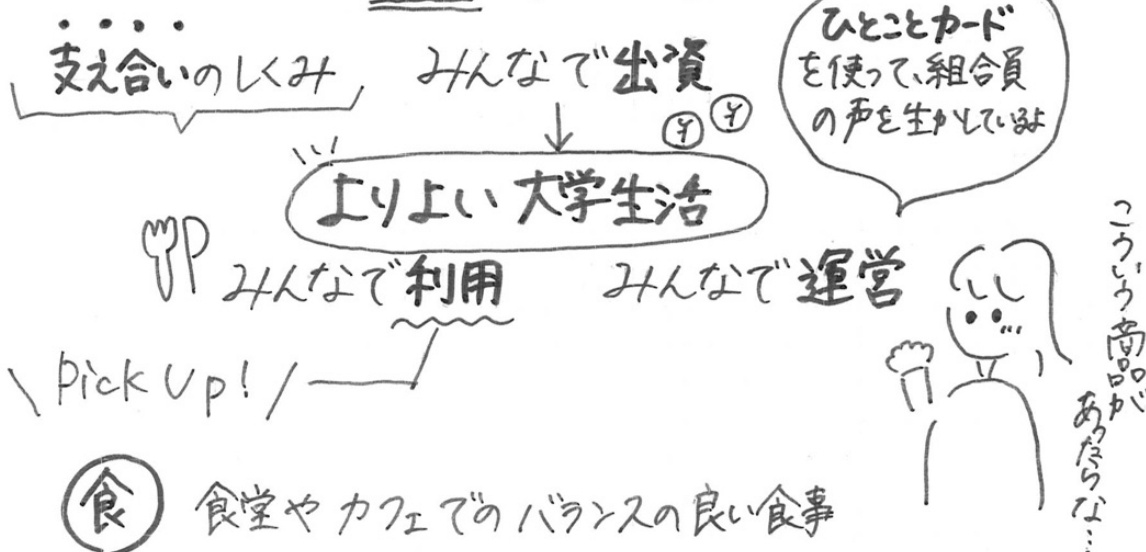 支え合いのしくみ
みんなで出資
¥ ¥
ひとことカード
を使って、組合員
の声を生かしているよ
よりよい大学生活
みんなで利用
みんなで運営
こういう商品が
あったらな…
Pick Up!
食 食堂やカフェでのバランスの良い食事